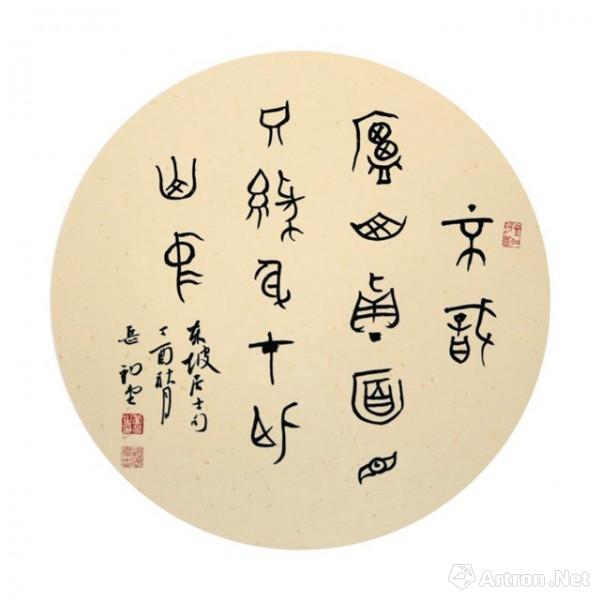 不識
廬山真面目
只緣身在此
山中
东坡居士句
丁酉秋月
岳
Artron.Net